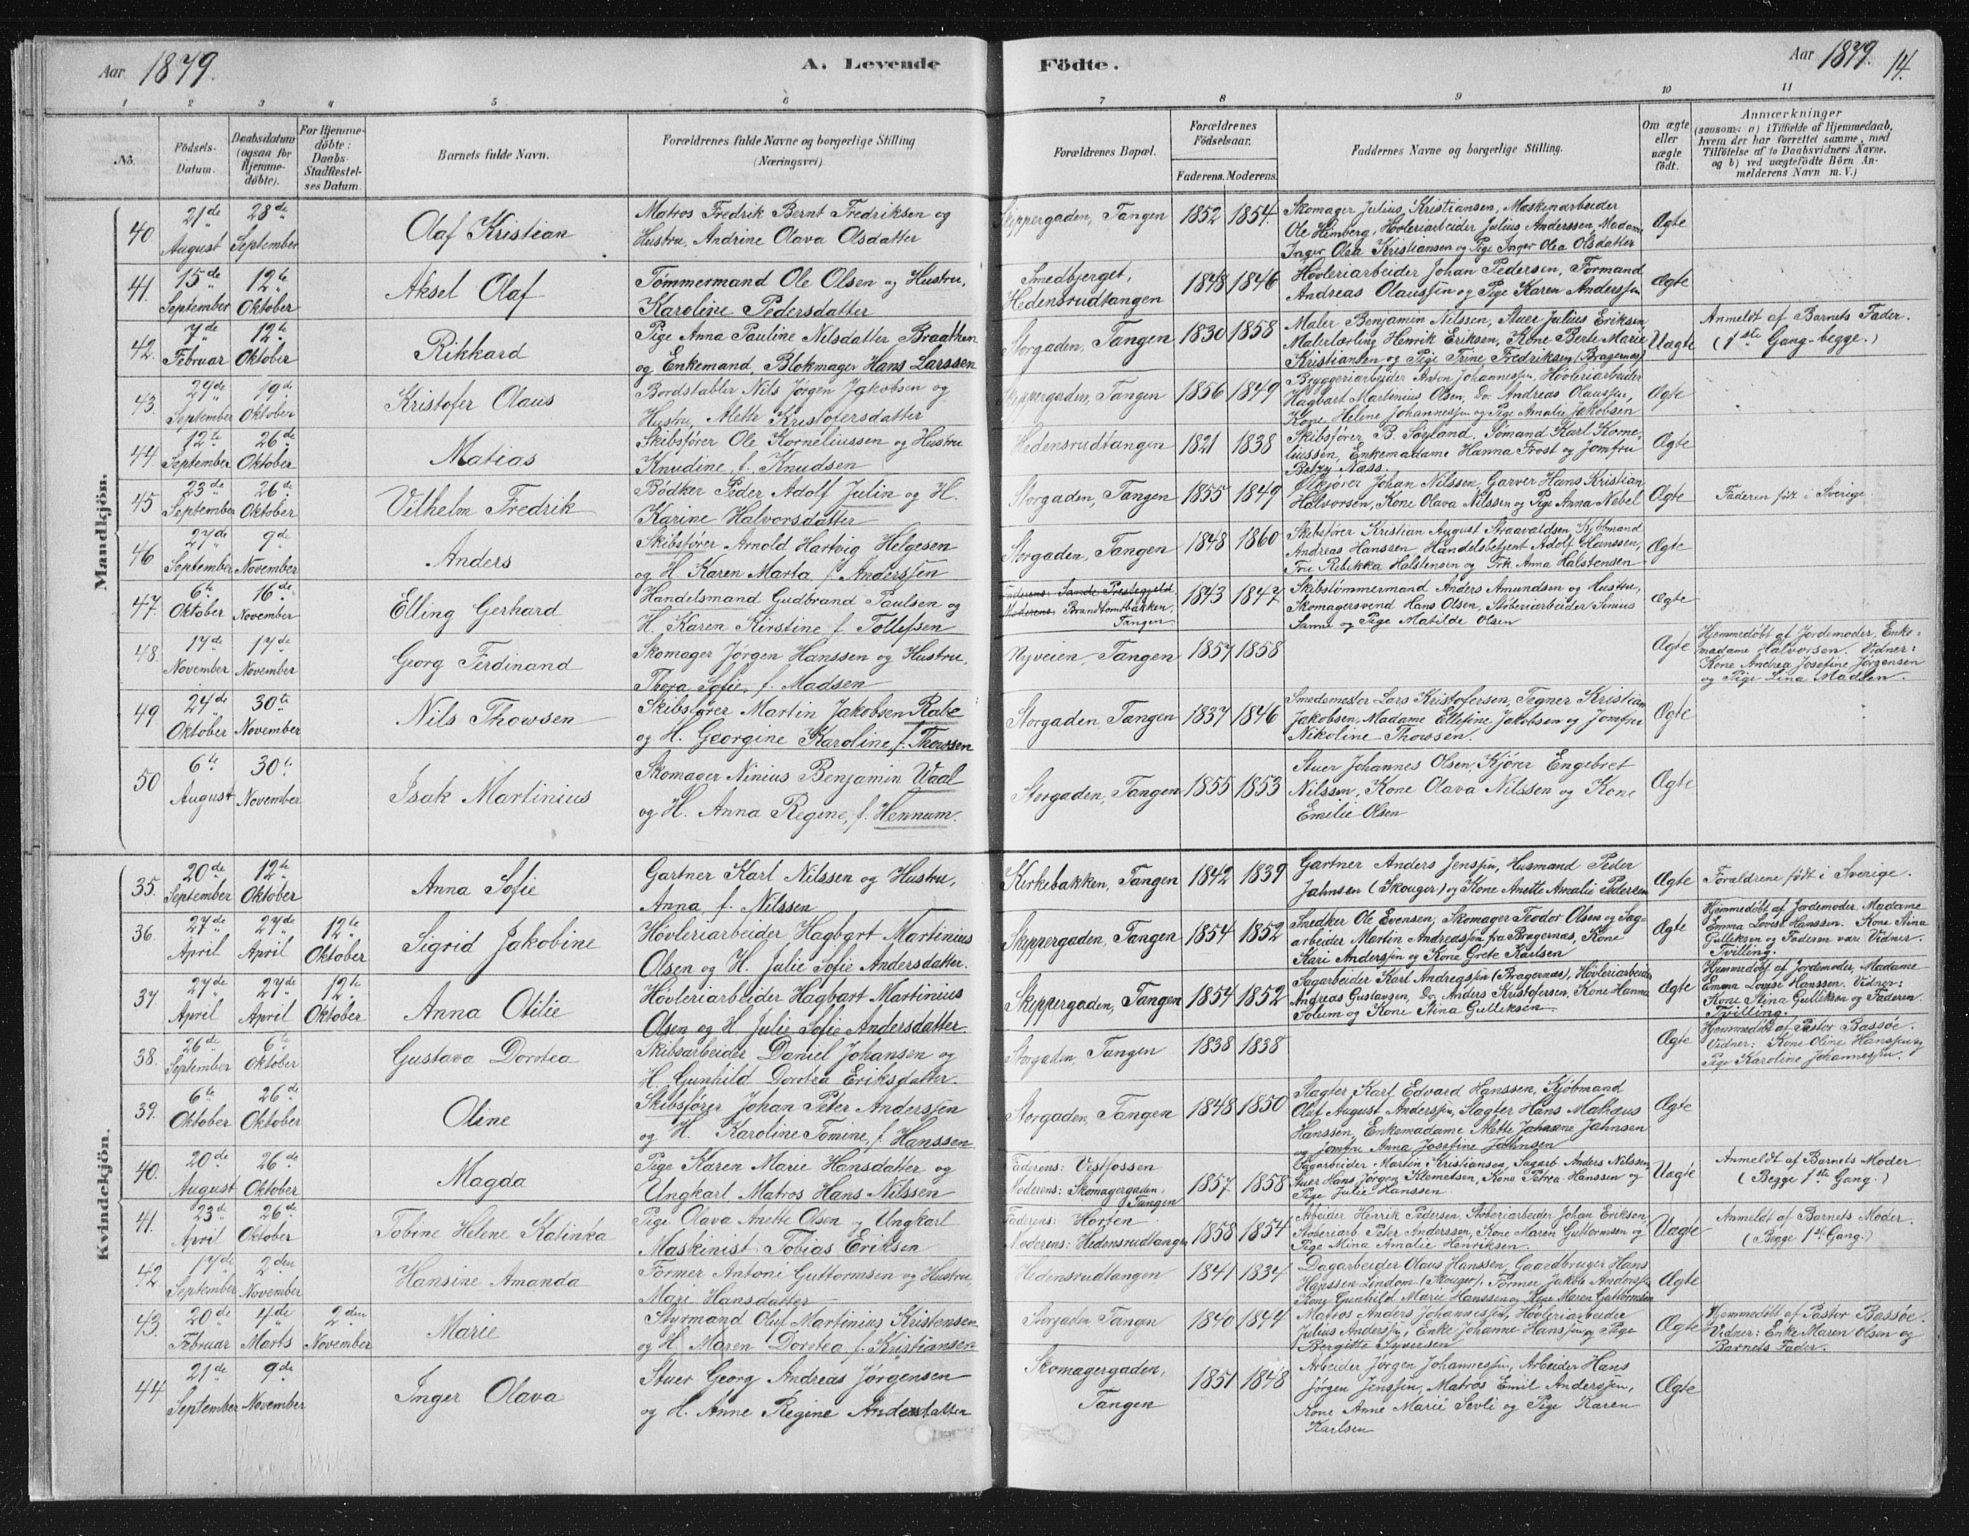 Aar 1879.
A. Levende
Födte.
Aar 1879.
14.
1 2 3 4 5 6 7 8 9 10 11
No.
Födsels-
Datum.
Daabsdatum
(ogsaa for
Hjemme-
döbte).
For Hjemme-
döbte:
Daabs-
Stadfæstel-
ses Datum.
Barnets fulde Navn.
Forældrenes fulde Navne og borgerlige Stilling
(Næringsvei)
Forældrenes Bopæl.
Forældrenes
Födselsaar.
Faderens. Moderens.
Faddernes Navne og borgerlige Stilling.
Om ægte
eller
uægte
födt.
Anmærkninger
(saasom: a) i Tilfælde af Hjemmedaab,
hvem der har forrettet samme, med
Tilföielse af to Daabsvidners Navne,
og b) ved uægtefödte Börn An-
melderens Navn m. V.)
Mandkjön.
40
21de August
28de September
Olaf Kristian
Matros Fredrik Bernt Fredriksen og
Hustru, Andrine Olava Olsdatter
Skippergaden, Tangen
1852 1854.
Skomager Julius Kristiansen, Maskinarbeider
Ole Himberg, Høvleriarbeider Julius Anderssen, Madame
Inger Olea Kristiansen og Pige Inger Olea Olsdatter
Ægte
41.
15de September
12te Oktober
Aksel Olaf
Tømmermand Ole Olsen og Hustru,
Karoline Pedersdatter
Smedbjerget,
Hedensrudtangen
1848 1846
Høvleriarbeider Johan Pedersen, Formand
Andreas Olaussen og Pige Karen Anderssen
Ægte
42.
7de Februar
12te Oktober
Rikkard
Pige Anna Pauline Nilsdatter Braathen
og Enkemand, Blokmager Hans Larssen
Storgaden, Tangen
1830 1858
Maler Benjamin Nilssen, Stuer Julius Eriksen
Malerlærling Henrik Eriksen, Kone Berte Marie
Kristiansen og Pige Trine Fredriksen (Bragernæs)
Uægte
Anmeldt af Barnets Fader.
(1ste Gang begge.)
43.
29de September
19de Oktober
Kristofer Olaus
Bordstabler Nils Jørgen Jakobsen og
Hustru, Aleth Kristofersdatter
Skippergaden, Tangen
1856 1849
Bryggeriarbeider Anton Johannessen, Høvleriarbeider
Hagbart Martinius Olsen, Do. Andreas Olaussen,
Kone Helene Johannessen og Pige Amalie Jakobsen
Ægte
44
12te September
26de Oktober
Matias
Skibsfører Ole Korneliussen og Hustru
Knudine f. Knudsen
Hedensrudtangen
1821 1838
Skibsfører B. Søyland. Sømand Karl Korne-
liussen, Enkemadame Hanna Frost og Jomfru
Betzy Næss.
Ægte
45
23de September
26de Oktober
Vilhelm Fredrik
Bødker Peder Adolf Julin og H.
Karine Halvorsdatter
Storgaden, Tangen
1855 1849
Ølkjører Johan Nilssen, Garver Hans Kristian
Halvorsen, Kone Olava Nilssen og Pige Anna Nebel
Ægte
Faderen født i Sverige
46
27de September
9de November
Anders
Skibsfører Arnold Hartvig Helgesen
og H. Karen Marta f. Anderssen
Storgaden, Tangen
1848 1860
Skibsfører Kristian August Skaavaldsen, Kjøbmand
Andreas Hanssen Handelsbetjent Adolf Hanssen,
Fru Rebekka Halstensen og Frk Anna Halstensen
Ægte
47.
6te Oktober
16de November
Elling Gerhard
Handelsmand Gudbrand Paulsen og
H. Karen Kirstine f. Tollefsen
Faderens: Sande Præstegjeld
Moderens: Brandtomtbakken,
Tangen
1843 1847
Skibstømmermand Anders Amundsen og Hustru,
Skomagersvend Hans Olsen, Støberiarbeider Sinius
Sanne og Pige Matilde Olsen
Ægte
48.
17de November
17de November
Georg Ferdinand
Skomager Jørgen Hanssen og Hustru,
Thora Sofie, f. Madsen
Nyveien, Tangen
1857 1858
Ægte
Hjemmedøbt af Jordemoder, Enke-
madame Halvorsen. Vidner:
Kone Andrea Josefine Jørgensen
og Pige Lina Madsen.
49
24de Oktober
30te November
Nils Thowsen
Skibsfører Martin Jakobsen Rabe
og H. Georgine Karoline, f. Thowsen
Storgaden, Tangen
1837 1846
Smedemester Lars Kristofersen, Tegner Kristian
Jakobsen, Madame Ellefine Jakobsen og Jomfru
Nikoline Thowsen.
Ægte
50
6te August
30te November
Isak Martinius
Skomager Ninius Benjamin Vaal
og H. Anna Regine, f. Hennum.
Storgaden, Tangen
1855 1853
Stuer Johannes Olsen, Kjører Engebret
Nilssen, Kone Olava Nilssen og Kone
Emilie Olsen
Ægte
Kvindekjön.
35.
20de September
12te Oktober
Anna Sofie
Gartner Karl Nilssen og Hustru,
Anna, f. Nilssen
Kirkebakken, Tangen
1842 1839
Gartner Anders Jenssen, Husmand Peder
Jahnsen (Skouger) og Kone Anette Amalie Pedersen
Ægte
Forældrene født i Sverige.
36.
27de April
27de April
12te Oktober
Sigrid Jakobine
Høvleriarbeider Hagbart Martinius
Olsen og H. Julie Sofie Andersdatter.
Skippergaden, Tangen
1854 1852
Snedker Ole Evensen, Skomager Teodor Olsen og Sag-
arbeider Martin Andreassen fra Bragernæs, Kone
Kari Anderssen og Kone Grete Karlsen
Ægte
Hjemmedøbt af Jordemoder, Madame
Emma Lovise Hanssen. Kone Stina
Gulliksen og Faderen vare Vidner.
Tvilling.
37.
27de April
27de April
12te Oktober
Anna Otilie
Høvleriarbeider Hagbart Martinius
Olsen og H. Julie Sofie Andersdatter
Skippergaden, Tangen
1854 1852
Sagarbeider Karl Andreassen (Bragernæs), Høvleriarbeider
Andreas Gustavsen, Do. Anders Kristofersen, Kone Hanna
Solum og Kone Stina Gulliksen
Ægte
Hjemmedøbt af Jordemoder, Madame
Emma Lovise Hanssen. Vidner:
Kone Stina Gulliksen og Faderen.
Tvilling.
38.
26de September
6te Oktober
Gustava Dorotea
Skibsarbeider Daniel Johansen og
H. Gunhild Dorotea Eriksdatter.
Storgaden, Tangen
1838 1838
Ægte
Hjemmedøbt af Pastor Bassøe.
Vidner: Kone Oline Hanssen og
Pige Karoline Johannessen.
39.
6te Oktober
26de Oktober
Oline
Skibsfører Johan Peter Anderssen
og H. Karoline Tomine, f. Hanssen
Storgaden, Tangen
1848 1850
Slagter Karl Edvard Hanssen, Kjøbmand
Oluf August Anderssen, Slagter Hans Mathæus
Hanssen, Enkemadame Alette Jahnsen
og Jomfru Anna Josefine Jahnsen
Ægte
40.
20de August
26de Oktober
Magda
Pige Karen Marie Hansdatter og
Ungkarl Matros Hans Nilssen
Faderens: Vestfossen
Moderens: Skomagergaden,
Tangen
1857 1858
Dagarbeider Martin Kristiansen, Sagarb. Anders Nilssen
Stuer Hans Jørgen Klemetsen, Kone Petrea Hanssen og
Pige Julie Hanssen.
Uægte
Anmeldt af Barnets Moder
(Begge 1ste Gang.)
41.
23de April
26de Oktober
Tobine Helene Katinka
Pige Olava Anette Olsen og Ungkarl
Maskinist Tobias Eriksen
Faderens: Horten
Moderens: Hedensrudtangen
1858 1854
Arbeider Henrik Pedersen, Støberiarbeider Johan Eriksen,
Støberiarb. Peter Anderssen, Kone Maren Guttormsen og
Pige Mina Amalie Henriksen.
Uægte
Anmeldt af Barnets Moder.
(Begge 1ste Gang.)
42
17de September
2den November
Hansine Amanda
Former Antoni Guttormsen og Hustru
Mari Hansdatter
Hedensrudtangen
1841 1834
Dagarbeider Olaus Hanssen, Gaardbruger Hans
Hanssen Lindom (Skouger), Former Jakob Anderssen
Kone Gunhild Marie Hanssen og Kone Maren Guttormsen
Ægte
43.
20de Februar
4de Marts
2den November
Marie
Styrmand Oluf Martinius Kristensen
og H. Maren Dorotea f. Kristiansen
Storgaden, Tangen
1840 1844
Matros Anders Johannessen, Høvleriarbeider
Julius Anderssen, Enke Johanne Hanssen og Pige
Bergitte Syversen
Ægte
Hjemmedøbt af Pastor Bassøe.
Vidner: Enke Maren Olsen og
Barnets Fader.
44
21de September
9de November
Inger Olava
Stuer Georg Andreas Jørgensen
og H. Anne Regine Andersdatter
Skomagergaden,
Tangen
1851 1848
Arbeider Jørgen Johannessen, Arbeider Hans
Jørgen Jenssen, Matros Emil Anderssen,
Kone Anne Marie Sevli og Pige Karen
Karlsen
Ægte